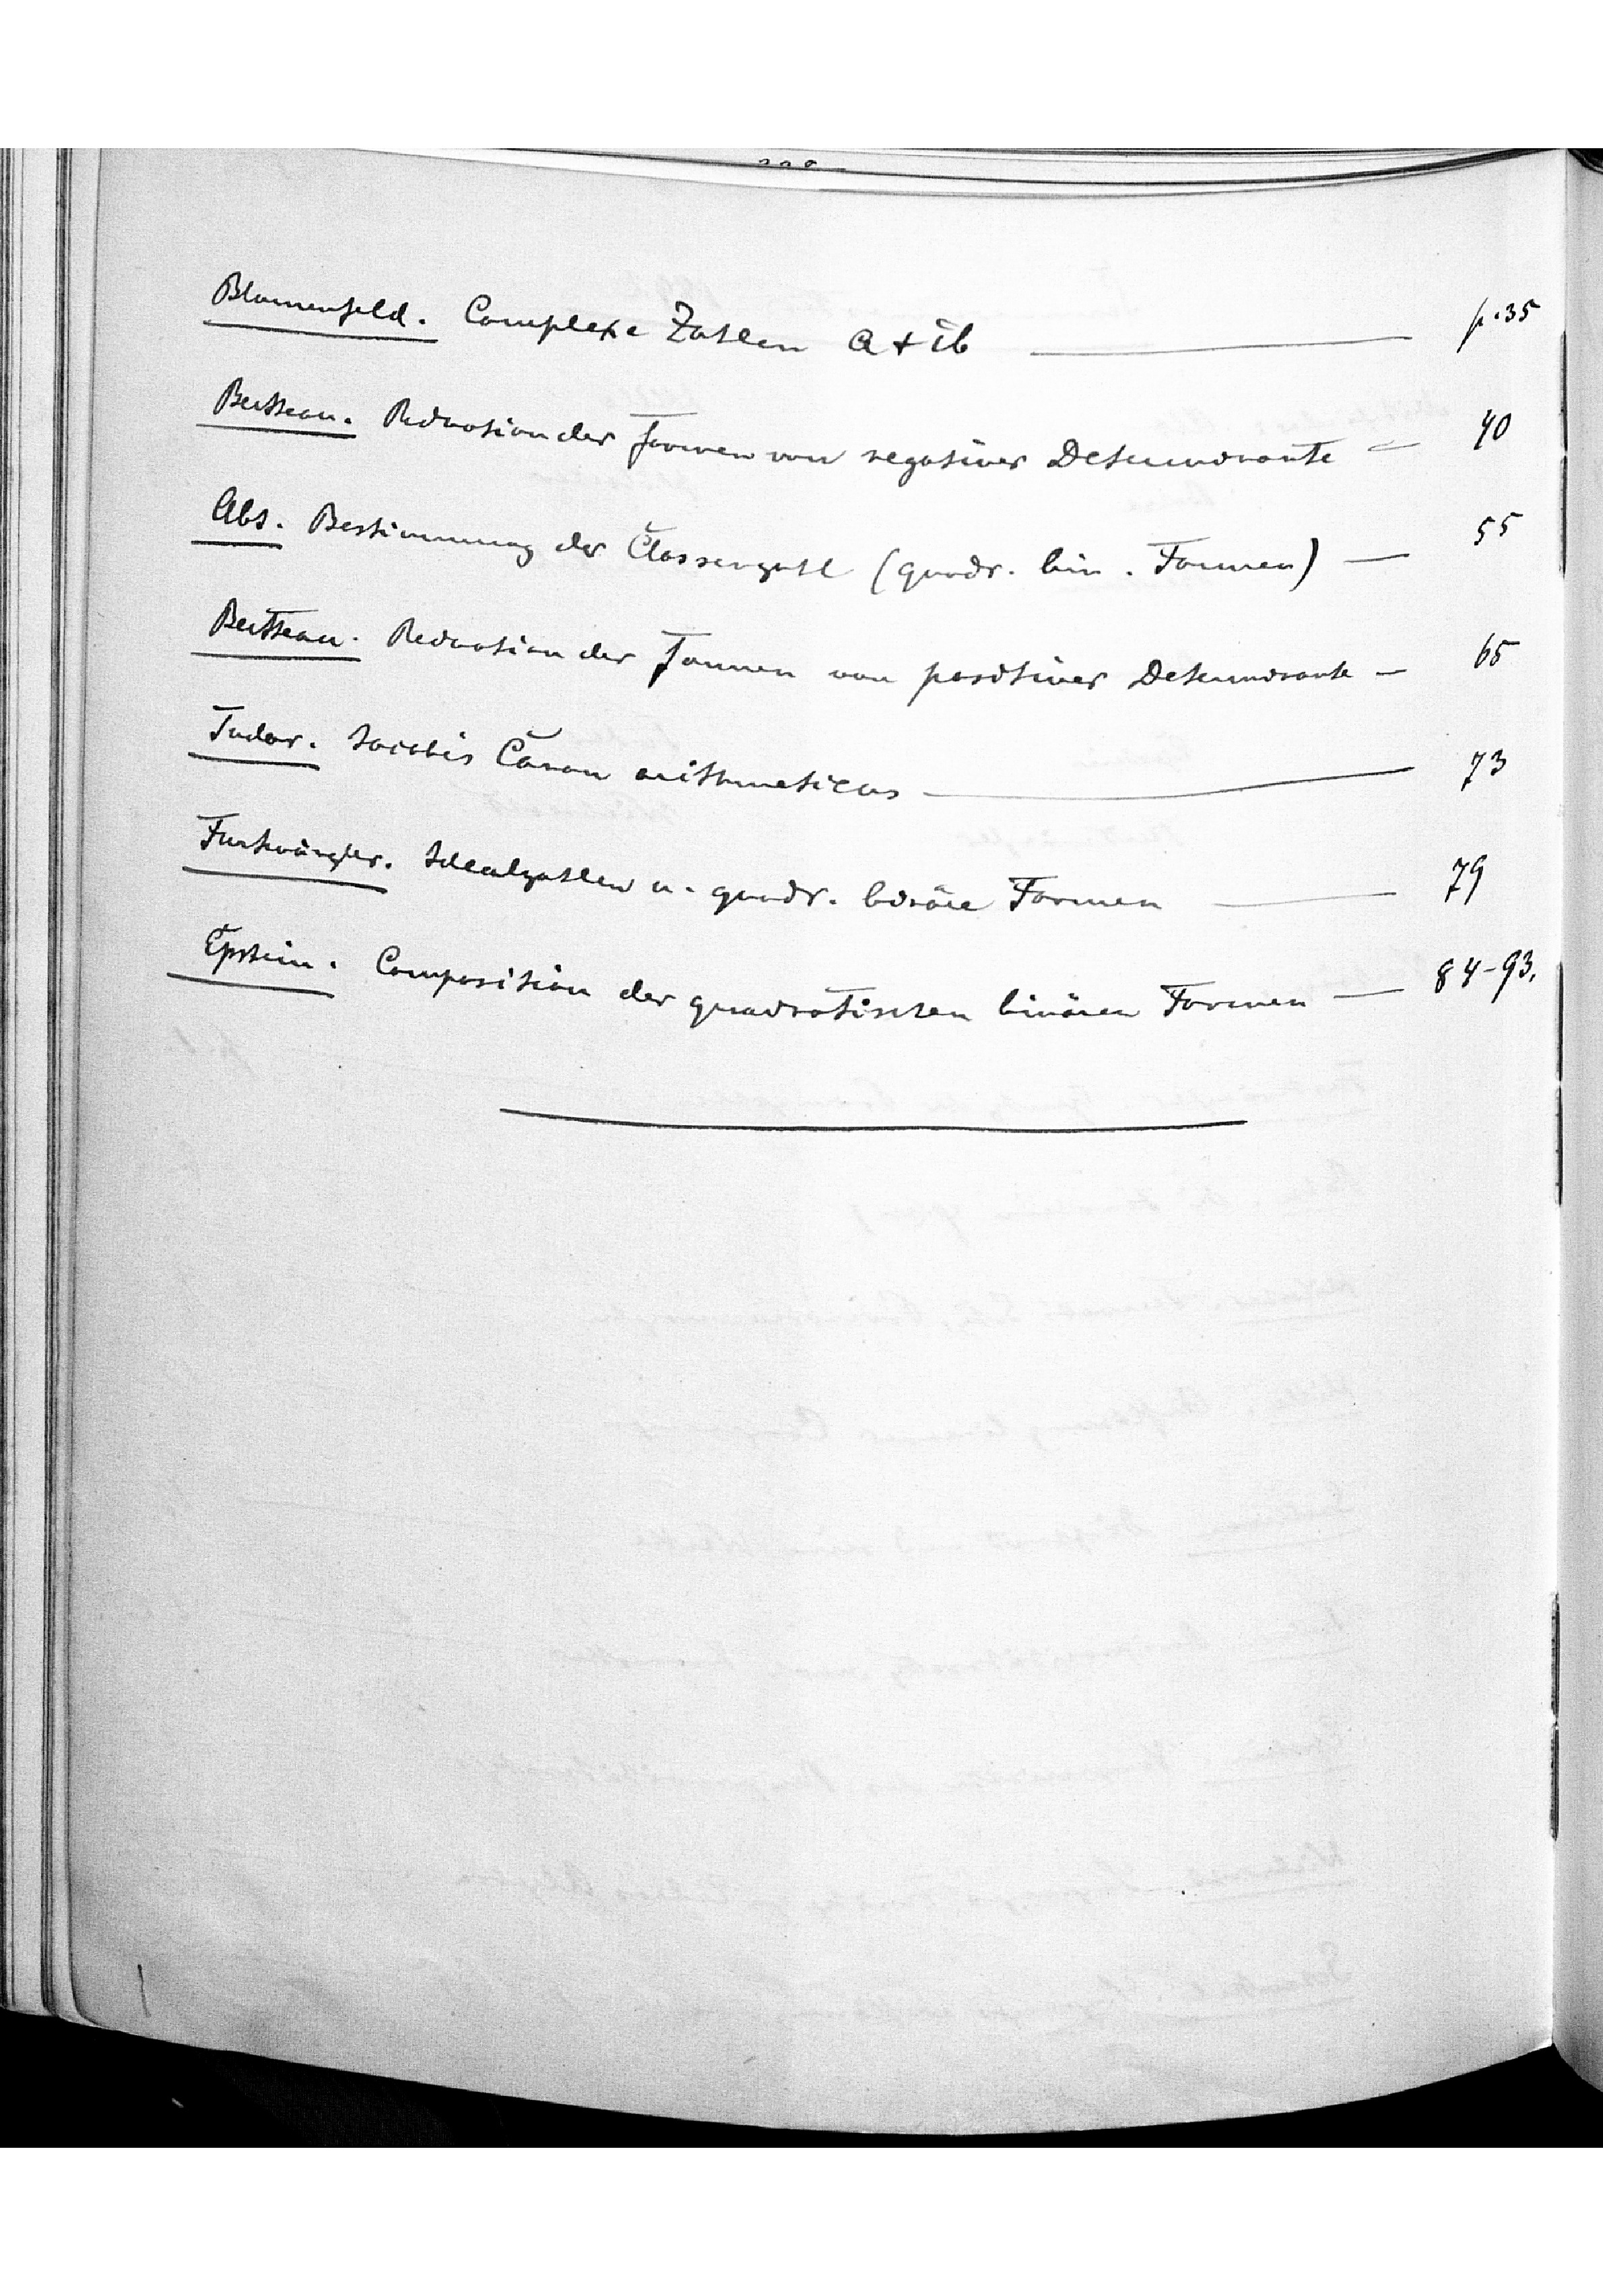 Blumenfeld. Complexe Zahlen a + ib — p. 35
Reduction der Formen von negativer Determinante — 40
Abs. Bestimmung der Classenzahl (quadr. bin. Formen) — 55
Reduction der Formen von positiver Determinante — 65
Tudor. Jacobis Canon arithmeticus — 73
Furtwängler. Idealzahlen u. quadr. binäre Formen — 79
Epstein. Composition der quadratischen binären Formen — 84-93.